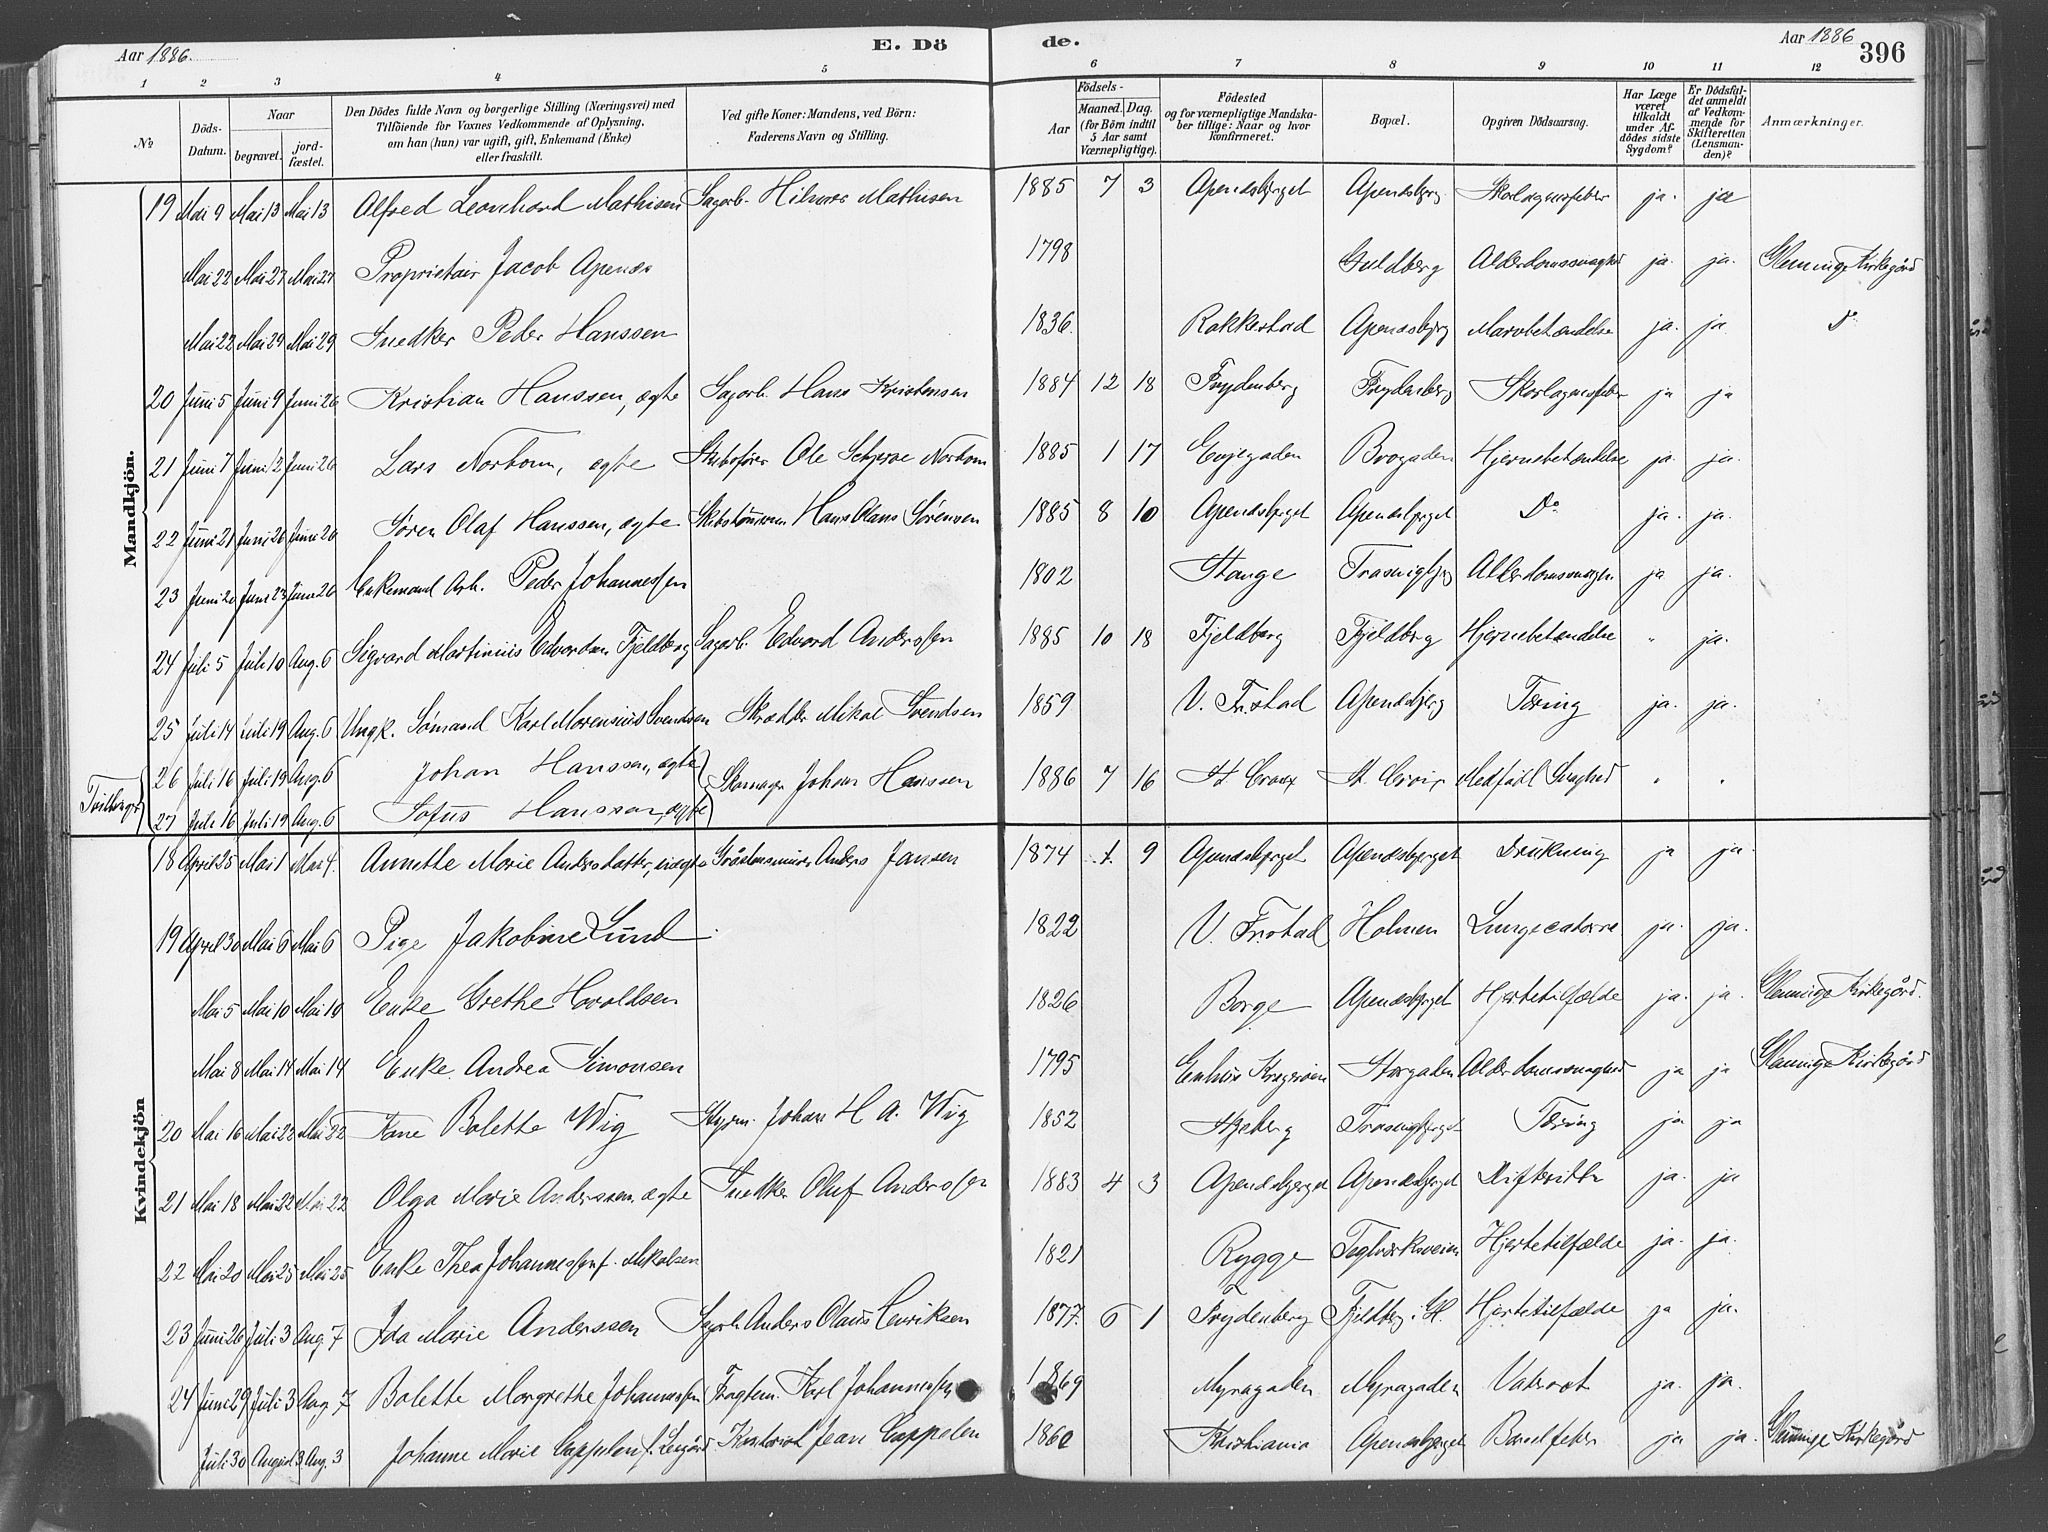 Aar 1886. E. Dö de. Aar 1886 396
1 2 3 4 5 6 7 8 9 10 11 12
No
Döds-Datum.
Naar
begravet.
jordfæstet.
Den Dödes fulde Navn og borgerlige Stilling (Næringsvei) med
Tilföiende for Voxnes Vedkommende af Oplysning.
om han (hun) var ugift, gift, Enkemand (Enke)
eller fraskilt.
Ved gifte Koner: Mandens, ved Börn:
Faderens Navn og Stilling.
Födsels-
Aar
Maaned. Dag.
(for Börn indtil
5 Aar samt
Værnepligtige).
Födested
og for værnepligtige Mandska-
ber tillige: Naar og hvor
konfirmeret.
Bopæl.
Opgiven Dödsaarsag.
Har Læge
været
tilkaldt
under Af-
dödes sidste
Sygdom?
Er Dödsfal-
det anmeldt
af Vedkom-
mende for
Skifteretten
(Lensman-
den)?
Anmærkninger.
Mandkjön.
19 Mai 9 Mai 13 Mai 13 Alfred Leonhard Mathisen Sagarb. Hilmar Mathisen 1885 7 3 Apenæsbjerget Apenæsbjerg Skarlagensfeber ja. ja
Mai 22 Mai 27 Mai 27 Proprietair Jacob Apenæs 1798 Guldberg Alderdomssvaghed ja. ja. Glemminge Kirkegård
Mai 22 Mai 29 Mai 29 Snedker Peder Hanssen 1836. Rakkestad Apenæsbjerg Marvbetændelse ja. ja. Do
20 Juni 5 Juni 9 Juni 26 Kristian Hanssen, ægte Sagarb. Hans Kristensen 1884 12 18 Frydenberg Frydenberg Skarlagensfeber ja ja
21 Juni 7 Juni 12 Juni 26 Lars Norbom, ægte Skibsfører Ole Norbom 1885 1 17 Enjegaden Brogaden Hjernebetændelse ja. ja.
22 Juni 21 Juni 26 Juni 26 Søren Olaf Hanssen, ægte Skibstømmerm Hans Olaus Sørensen 1885 8 10 Apenæsbjerget Apenæsbjerget Do ja. ja.
23 Juni 20 Juni 23 Juni 26 Enkemand Arb. Peder Johannessen 1802 Stange Trosvigbjerg ja ja.
24 Juli 5 Juli 10 Aug. 6 Sigvard Martinius Edvardsen Fjeldberg Sagarb. Edvard Anderssen 1885 10 18 Fjeldberg Fjeldberg Hjernebetændelse " ja.
25 Juli 14 Juli 19 Aug. 6 Ungk. Sømand Karl Morensius Svendsen Skrædder Mikal Svendsen 1859 V. Fr.stad Apenæsbjerg Tæring ja. ja.
Tvillinger
26 Juli 16 Juli 19 Aug. 6 Johan Hanssen, ægte Skomager Johan Hanssen 1886 7 16 St. Croix St. Croix Medfødt Svaghed " "
27 Juli 16 Juli 19 Aug. 6 Sofus Hanssen, ægte
Kvindekjön
18 April 25 Mai 1 Mai 4. Annette Marie Andersdatter, uægte Gråstensminer Anders Jansen 1874 1. 9 Apenæsbjerget Apenæsbjerget Drukning ja ja.
19 April 30 Mai 6 Mai 6 Pige Jakobine Lund 1822 V. Fr.stad Holmen Lungecatarre ja. ja.
Mai 5 Mai 10 Mai 10 Enke Grethe Haraldsen 1826 Borge Apenæsbjerget Hjertetilfælde ja. ja. Glemminge Kirkegård.
Mai 8 Mai 14 Mai 14 Enke Andrea Simonsen 1795 Enhuus Kragerøen Storgaden Alderdomssvaghed ja ja Glemminge Kirkegård
20 Mai 16 Mai 22 Mai 22 Kone Bolette Wig Styrm. Johan H. A. Wig 1852 Skjeberg Trosvigbjerget Tæring ja ja
21 Mai 18 Mai 22 Mai 22 Olga Marie Anderssen, ægte Snedker Oluf Anderssen 1883 4 3 Apenæsbjerget Apenæsbjerget Difteritis ja. ja
22 Mai 20 Mai 25 Mai 25 Enke Thea Johannessen f. Mikalsen 1821 Rygge Teglværksveien Hjertetilfælde ja. ja.
23 Juni 26 Juli 3 Aug. 7 Ida Marie Anderssen Sagarb. Anders Olaus Henriksen 1877. 6 1 Frydenberg Fjeldberg i Gl. Hjertetilfælde ja ja.
24 Juni 29 Juli 3 Aug. 7 Bolette Margrethe Johannessen Fragtem. Karl Johannessen 1869 Myragaden Myragaden Vatersot ja. ja.
Juli 30 August 3 Aug. 3 Johanne Marie Cappelen f. Kontorist Jean Cappelen 1860 Kristiania Apenæsbjerget Barselfeber ja ja. Glemminge Kirkegård